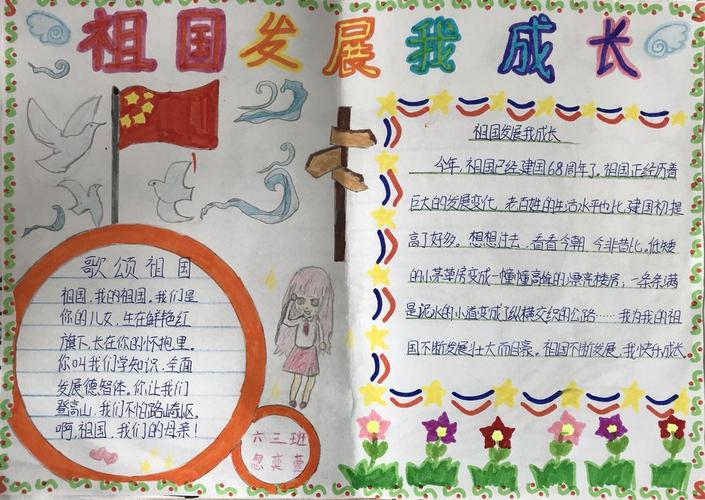 祖国发展我成长
歌颂祖国
祖国,我的祖国。我们是
你的儿女,生在鲜艳红
旗下,长在你的怀抱里。
你叫我们学知识,全面
发展德智体。你让我们
登高山,我们不怕路崎岖。
啊,祖国,我们的母亲!
六三班
祖国发展我成长
今年,祖国已经建国68周年了。祖国正经历着
巨大的发展变化,老百姓的生活水平也比建国初提
高了好多。想想过去,看看今朝,今非昔比。低矮
的小茅草房变成一幢幢高耸的漂亮楼房,一条条满
是泥水的小道变成了纵横交织的公路……我为我的祖
国不断发展壮大而自豪。祖国不断发展,我快乐成长。